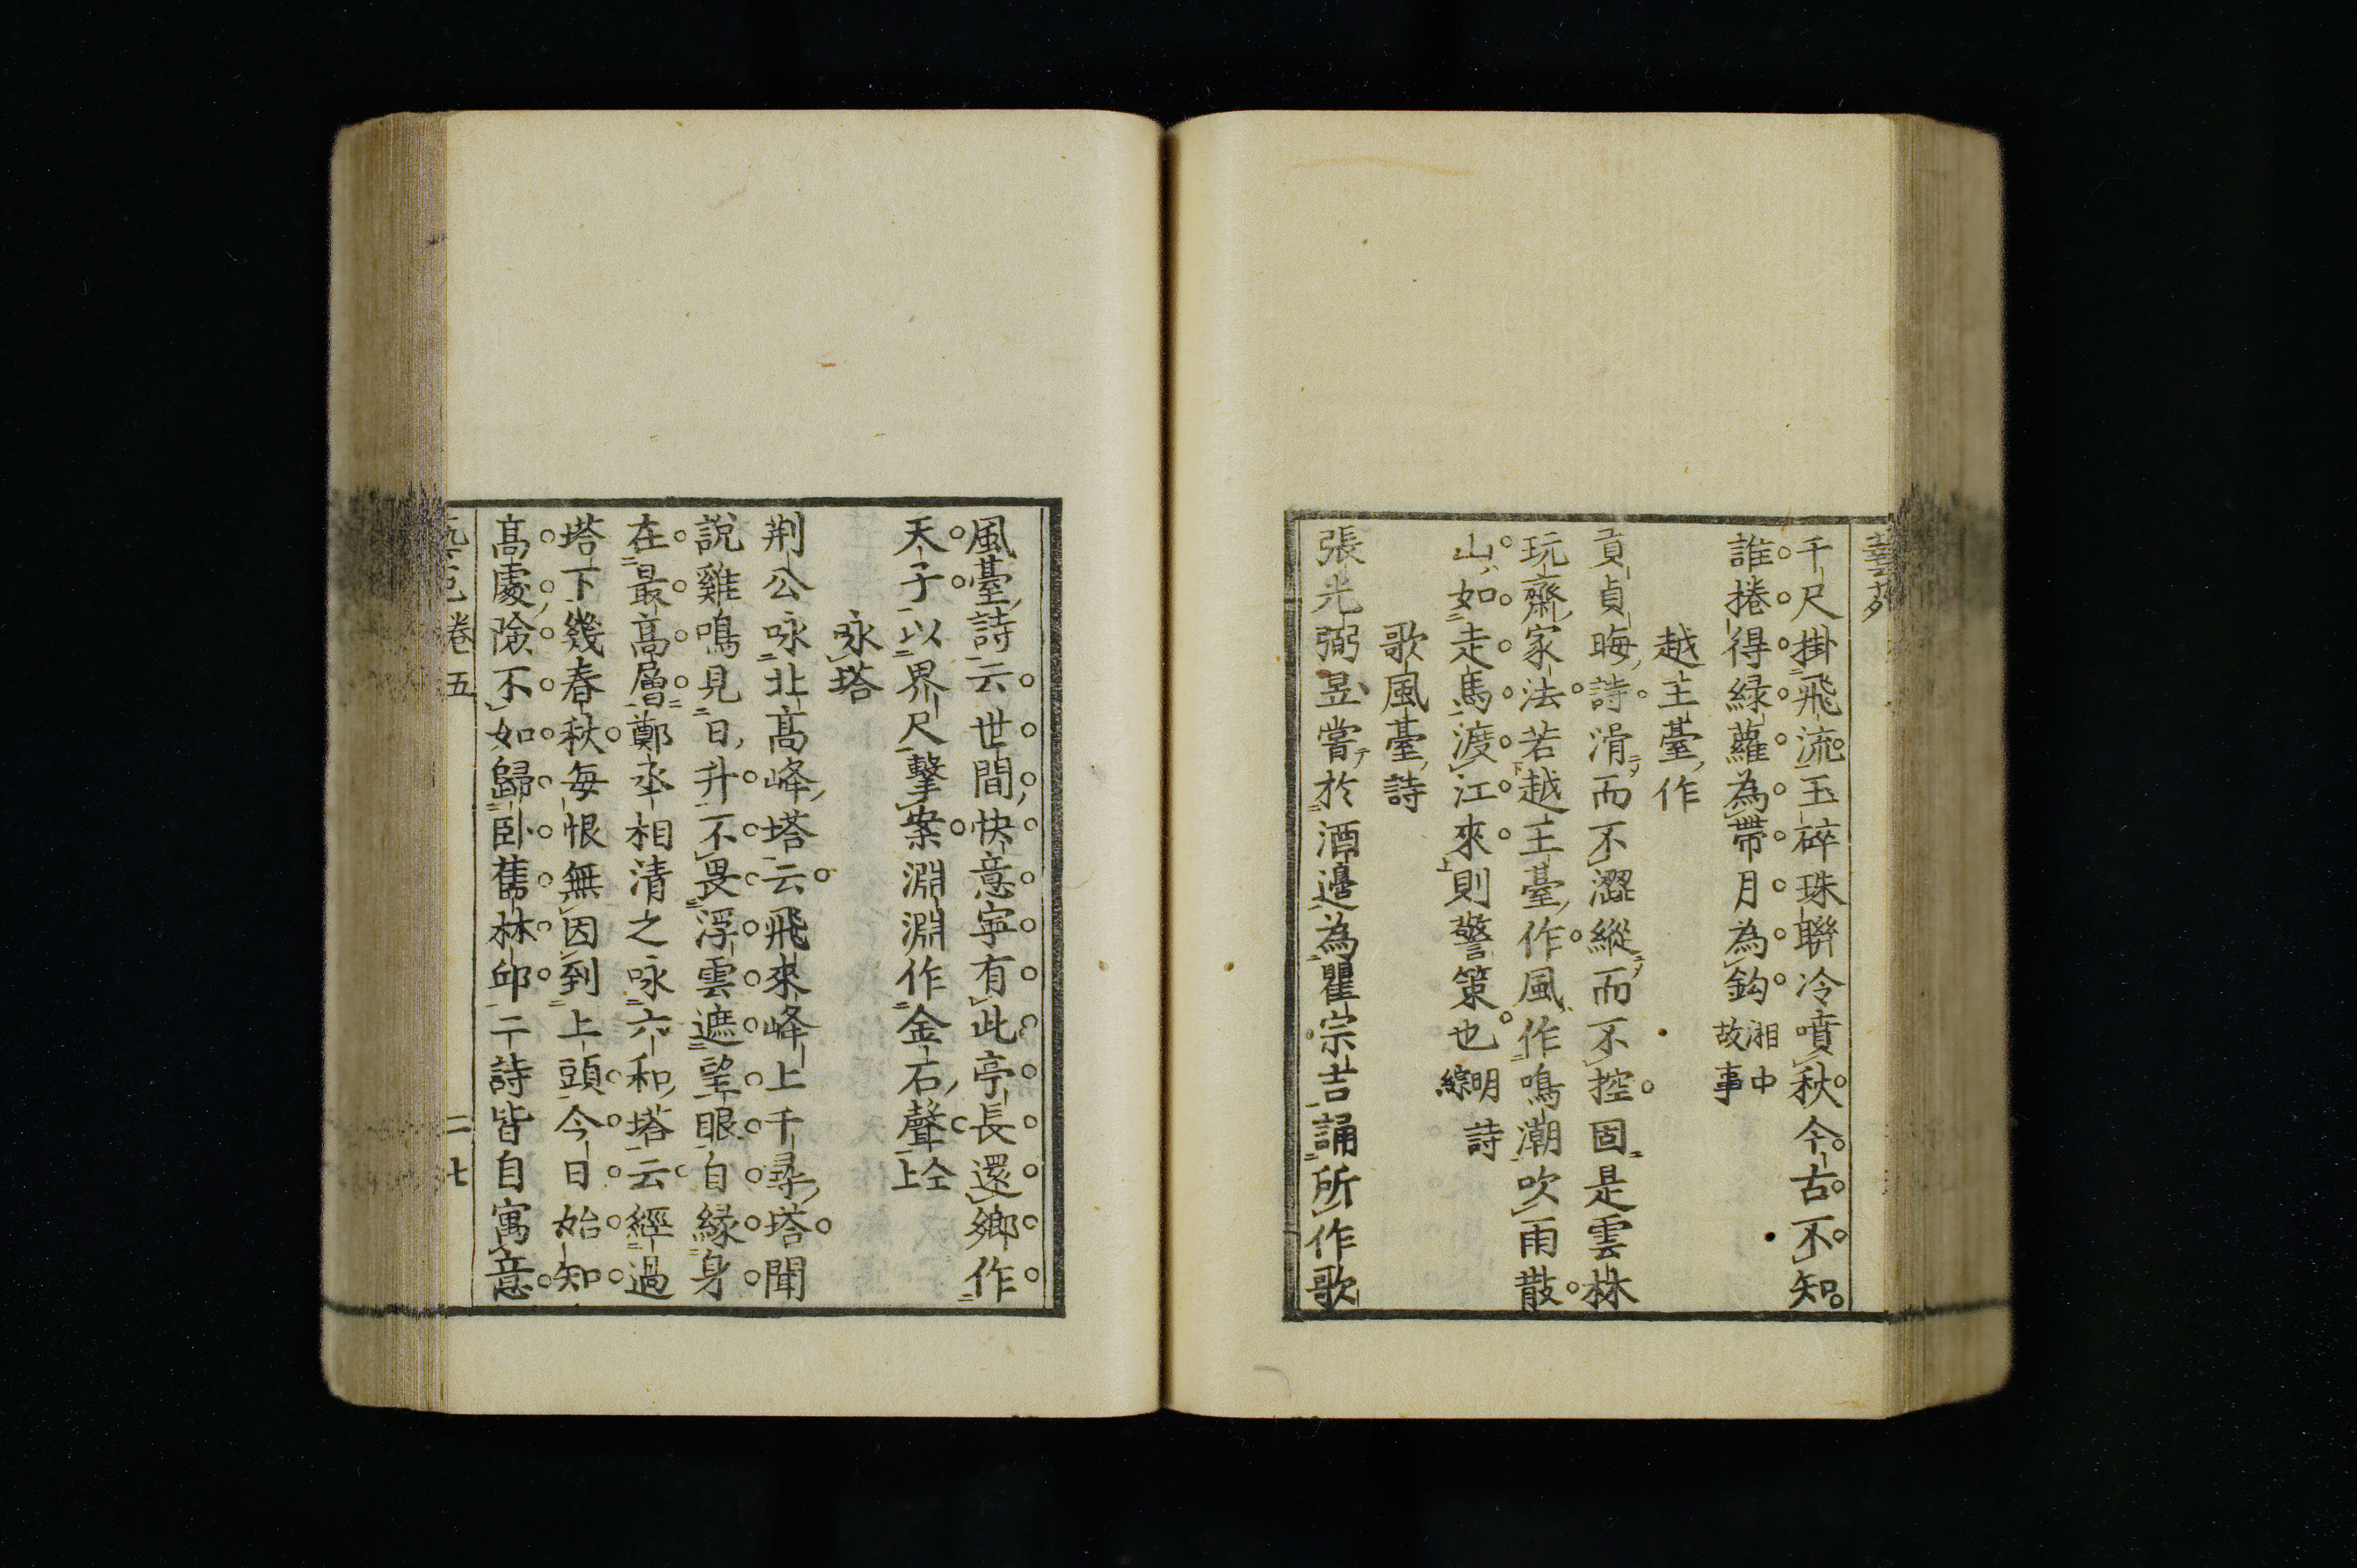 千尺掛飛流玉碎珠聯冷噴秋今古不知
誰捲得緑蘿為帶月為鈎湘中故事
越王臺作
貢貞晦詩滑而不澀縱而不控固是雲林
玩齋家法若越王臺作風作鳴潮吹雨散
山如走馬渡江來則警策也明詩綜
歌風臺詩
張光弼昱嘗於酒邉為瞿宗吉誦所作歌
風臺詩云世間快意寧有此亭長還鄉作
天子以界尺擊案淵淵作金石聲仝上
咏塔
荆公咏北高峰塔云飛來峰上千尋塔聞
說雞鳴見日升不畏浮雲遮望眼自緣身
在最高層鄭丞相清之咏六和塔云經過
塔下幾春秋每恨無因到上頭今日始知
高處險不如歸卧舊林邱二詩皆自寓意
卷五
二七